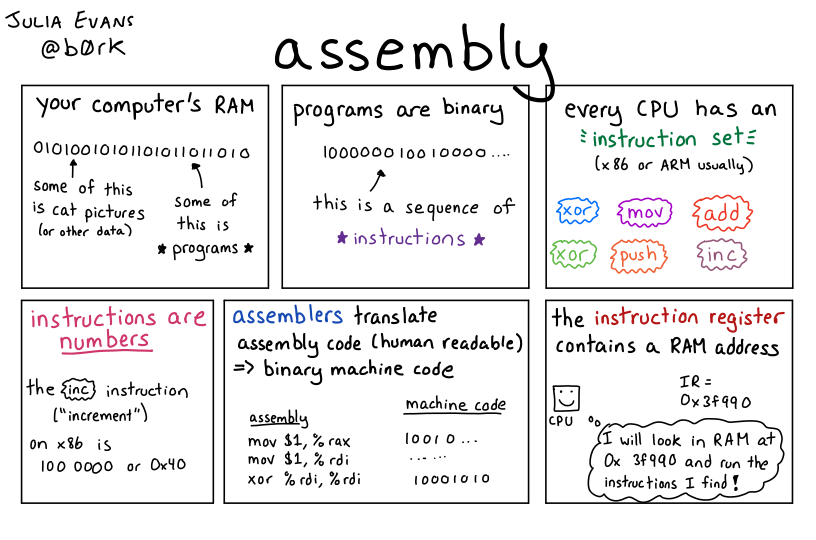 JULIA EVANS
@b0rk
assembly
your computer's RAM
0101001010110101101 1010
some of this
is cat pictures
(or other data)
some of
this is
★ programs ★
programs are binary
1000000 100 10000 ....
this is a sequence of
★ instructions ★
every CPU has an
instruction set
(x86 or ARM usually)
xor mov add
xor push inc
instructions are
numbers
the inc instruction
("increment")
on x86 is
100 0000 or 0x40
assemblers translate
assembly code (human readable)
=> binary machine code
assembly machine code
mov $1, % rax 10010 ...
mov $1, % rdi ... ...
xor % rdi, % rdi 10001010
the instruction register
contains a RAM address
IR =
0x3f990
CPU
I will look in RAM at
0x 3f990 and run the
instructions I find!